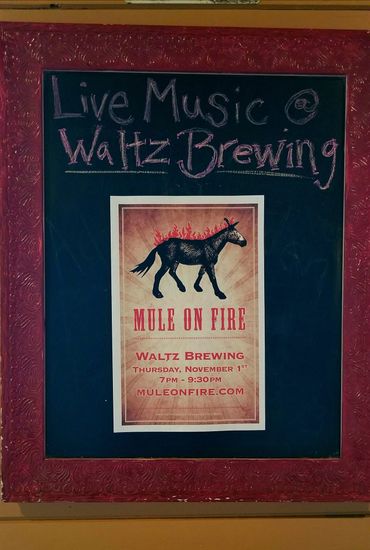 Live Music @
Waltz Brewing
MULE ON FIRE
WALTZ BREWING
THURSDAY, NOVEMBER 1ST
7PM - 9:30PM
MULEONFIRE.COM